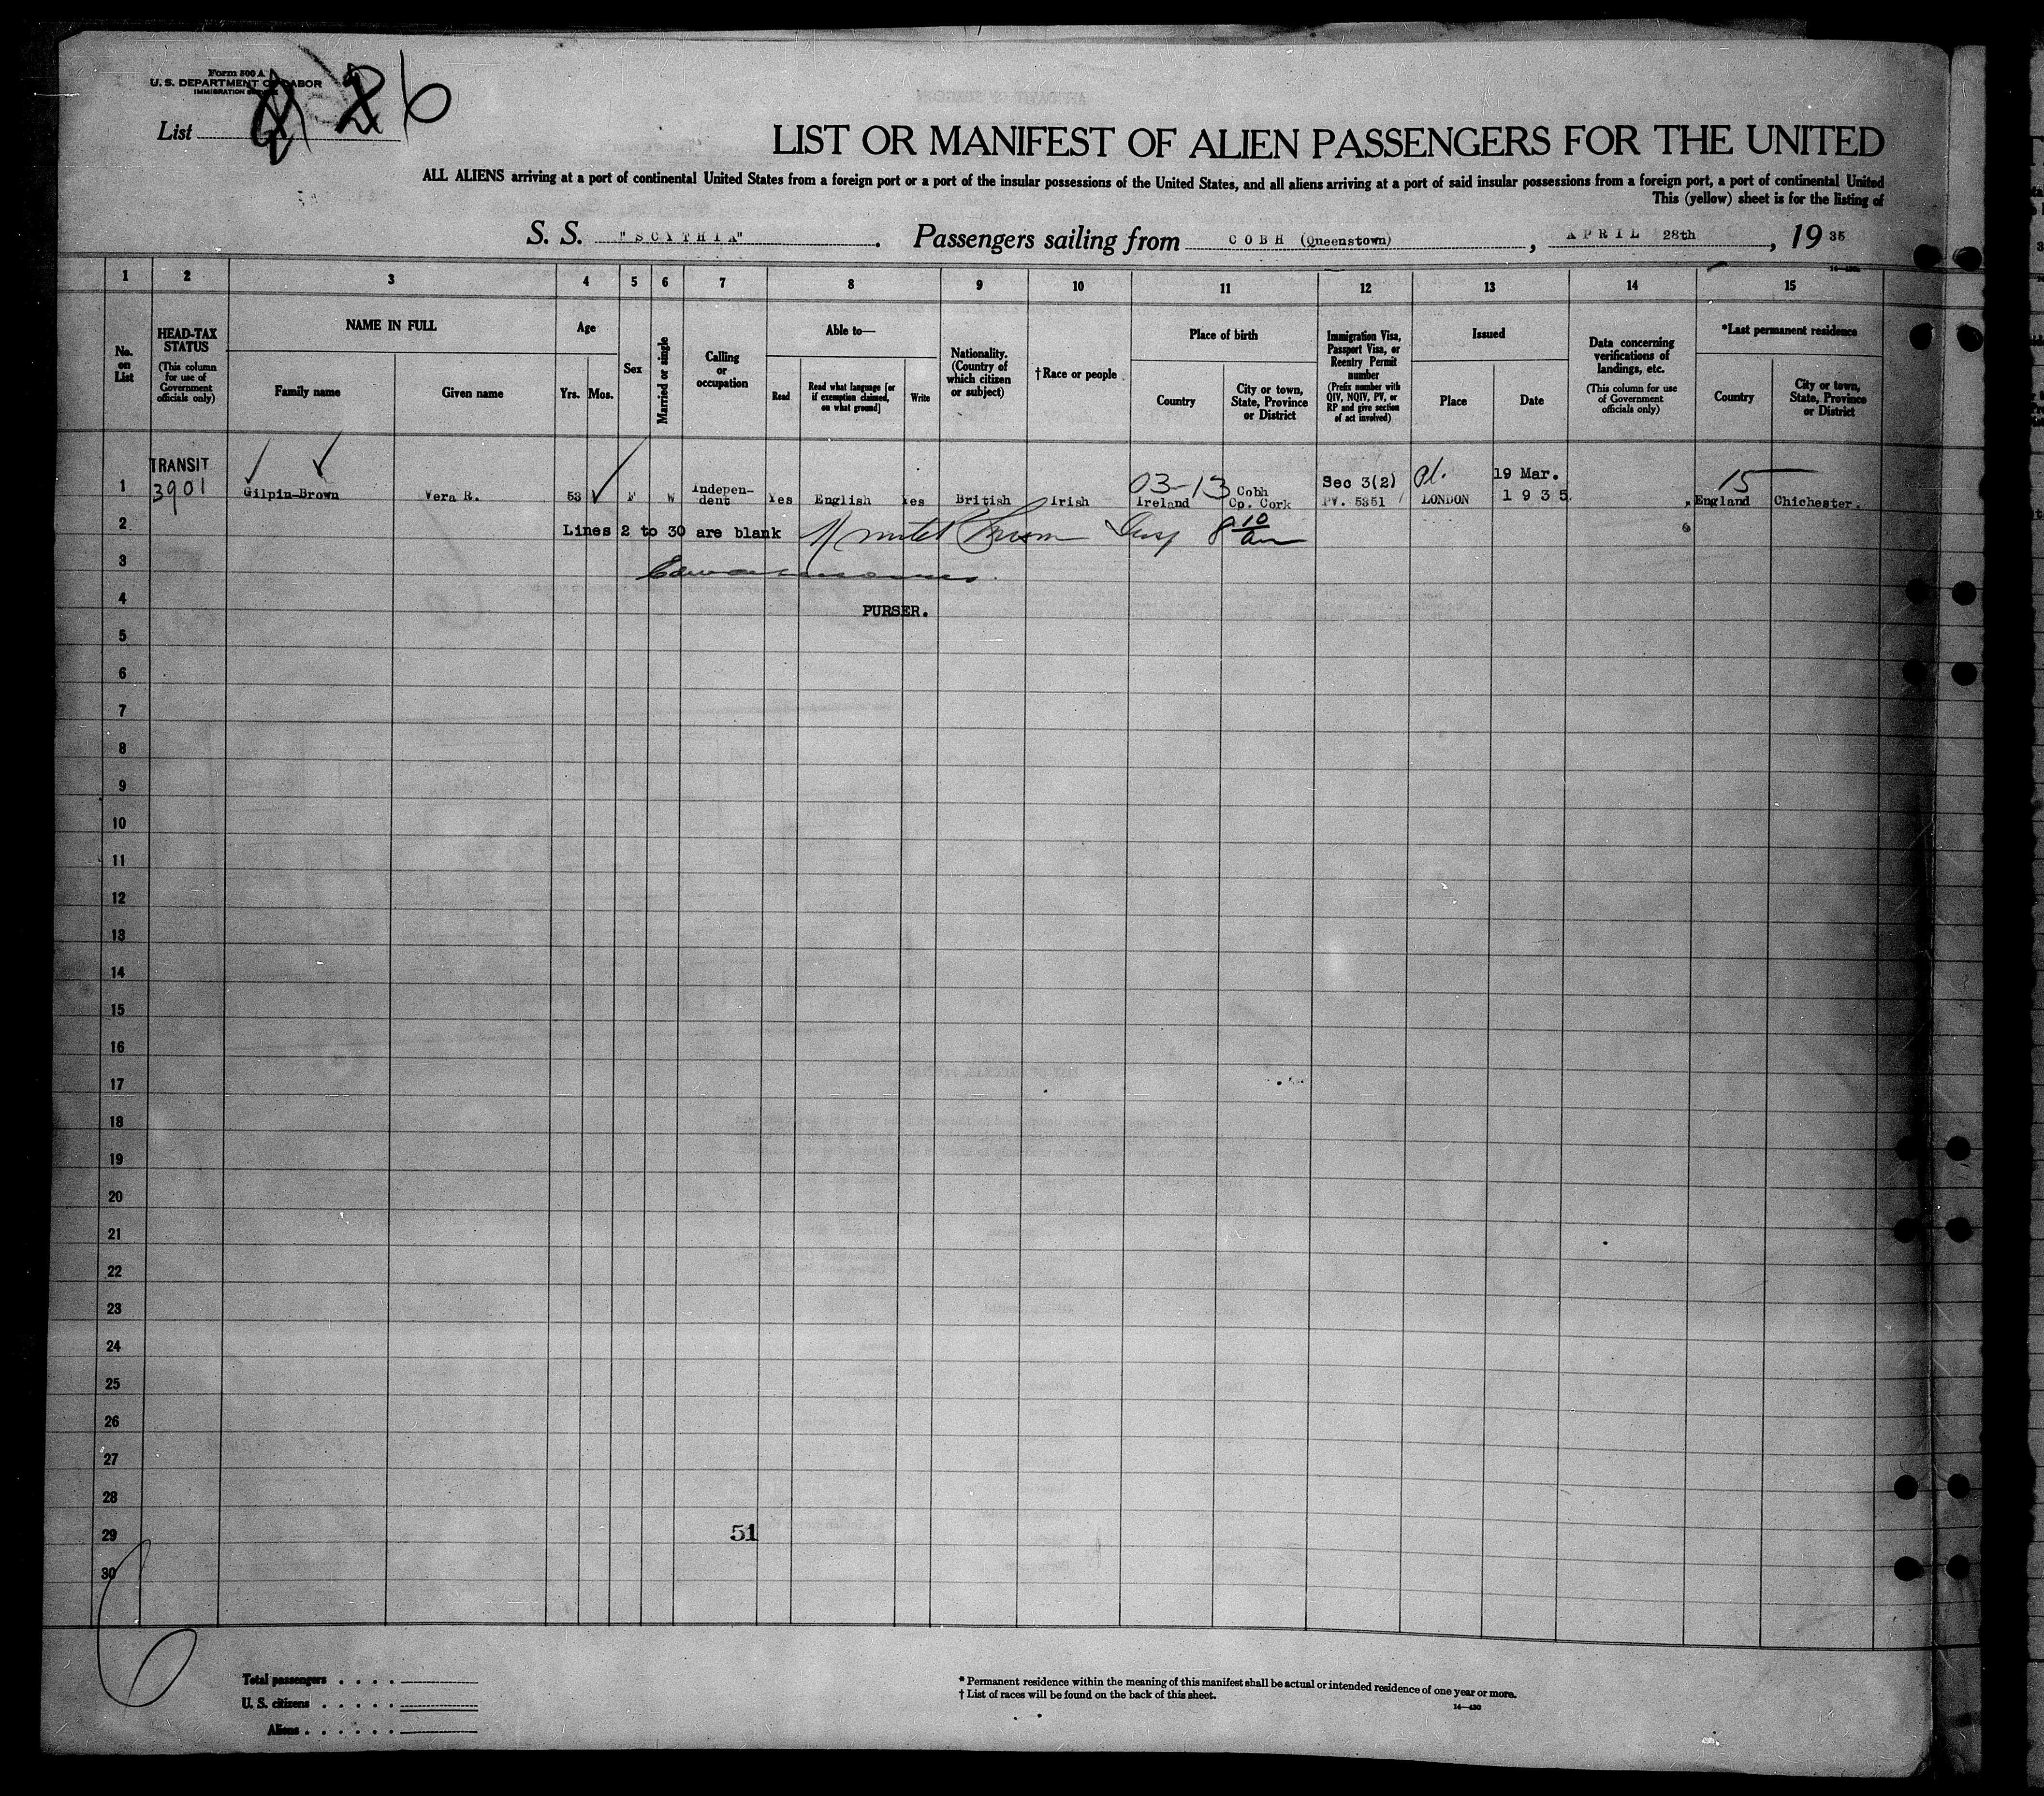 Form 500 A
U. S. DEPARTMENT OF LABOR
IMMIGRATION
List 26
LIST OR MANIFEST OF ALIEN PASSENGERS FOR THE UNITED
ALL ALIENS arriving at a port of continental United States from a foreign port or a port of the insular possessions of the United States, and all aliens arriving at a port of said insular possessions from a foreign port, a port of continental United
This (yellow) sheet is for the listing of
S. S. "SCYTHIA". Passengers sailing from COBH (Queenstown), APRIL 28th, 1935
1 2 3 4 5 6 7 8 9 10 11 12 13 14 15
No. on List
HEAD-TAX STATUS (This column for use of Government officials only)
NAME IN FULL
Family name Given name
Age
Yrs. Mos.
Sex
Married or single
Calling or occupation
Able to—
Read Read what language [or if exemption claimed, on what ground] Write
Nationality. (Country of which citizen or subject)
†Race or people
Place of birth
Country City or town, State, Province or District
Immigration Visa, Passport Visa, or Reentry Permit number (Prefix number with QIV, NQIV, PV, or RP and give section of act involved)
Issued
Place Date
Data concerning verifications of landings, etc. (This column for use of Government officials only)
*Last permanent residence
Country City or town, State, Province or District
TRANSIT
03-13 Sec 3(2) 19 Mar. 15
1 3901 Gilpin-Brown Vera R. 53 F W Independent Yes English Yes British Irish Ireland Cobh Co. Cork PV. 5351 LONDON 1935 England Chichester.
2 Lines 2 to 30 are blank
3
4 PURSER.
5
6
7
8
9
10
11
12
13
14
15
16
17
18
19
20
21
22
23
24
25
26
27
28
29 51
30
Total passengers . . . .
U. S. citizens . . . . .
Aliens . . . . . .
* Permanent residence within the meaning of this manifest shall be actual or intended residence of one year or more.
† List of races will be found on the back of this sheet.
14—430